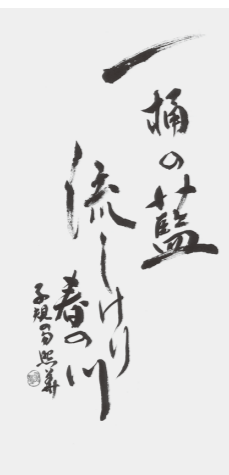 一桶の藍
流しけり
春の川
子規句 熙華